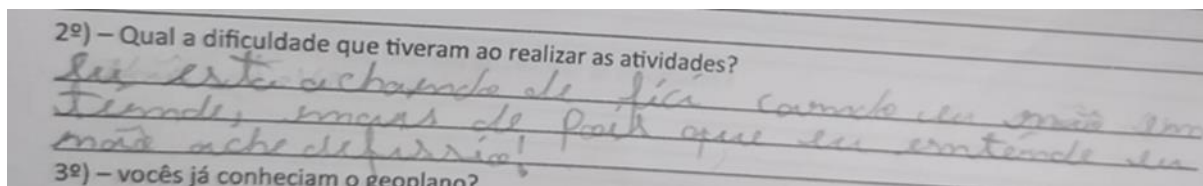 2º) – Qual a dificuldade que tiveram ao realizar as atividades?
Eu esta achamdo de fici camdo eu não em
temde, mais de pois que eu emtemde eu
não ache
3º) – vocês já conheciam o geoplano?